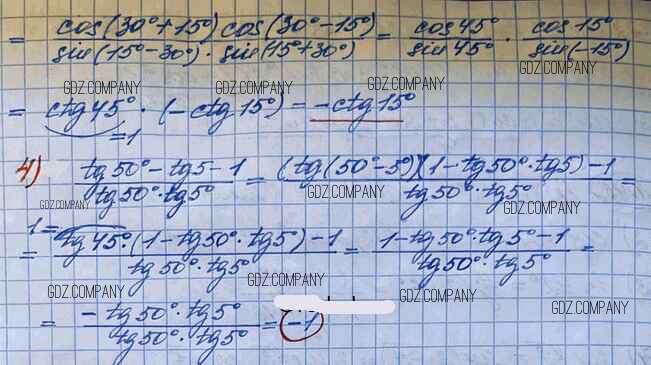 = cos(30°+15°) cos(30°-15°) / sin(15°-30°) · sin(15°+30°) = cos 45° / sin 45° · cos 15° / sin(-15°)
GDZ.COMPANY GDZ.COMPANY GDZ.COMPANY
= ctg 45° · (-ctg 15°) = -ctg 15°
=1
GDZ.COMPANY GDZ.COMPANY GDZ.COMPANY
4) tg 50° - tg 5 - 1 / tg 50° · tg 5° = (tg(50°-5°)(1-tg 50°·tg 5) - 1 / tg 50° · tg 5° =
GDZ.COMPANY GDZ.COMPANY GDZ.COMPANY
1=
= tg 45° · (1-tg 50° · tg 5) - 1 / tg 50° · tg 5° = 1-tg 50° · tg 5° - 1 / tg 50° · tg 5° =
GDZ.COMPANY GDZ.COMPANY GDZ.COMPANY GDZ.COMPANY
= -tg 50° · tg 5° / tg 50° · tg 5° = -1